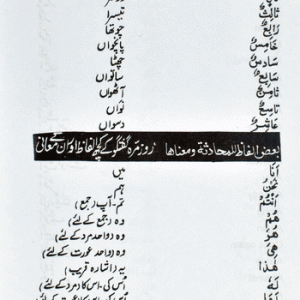 ثَالِثٌ تیسرا
رَابِعٌ چوتھا
خَامِسٌ پانچواں
سَادِسٌ چھٹا
سَابِعٌ ساتواں
ثَامِنٌ آٹھواں
تَاسِعٌ نواں
عَاشِرٌ دسواں
بعض الفاظ للمحادثة ومعناها روزمرہ گفتگو کے کچھ الفاظ اور ان کے معانی
أَنَا میں
نَحْنُ ہم
أَنْتُمْ تم۔آپ (جمع)
هُمْ وہ (جمع کے لئے)
هُوَ وہ (واحد مرد کے لئے)
هِيَ وہ (واحد عورت کے لئے)
هٰذَا یہ (اشارہ قریب)
لَهٗ اُس کی۔اُس کا (مرد کے لئے)
لَهَا